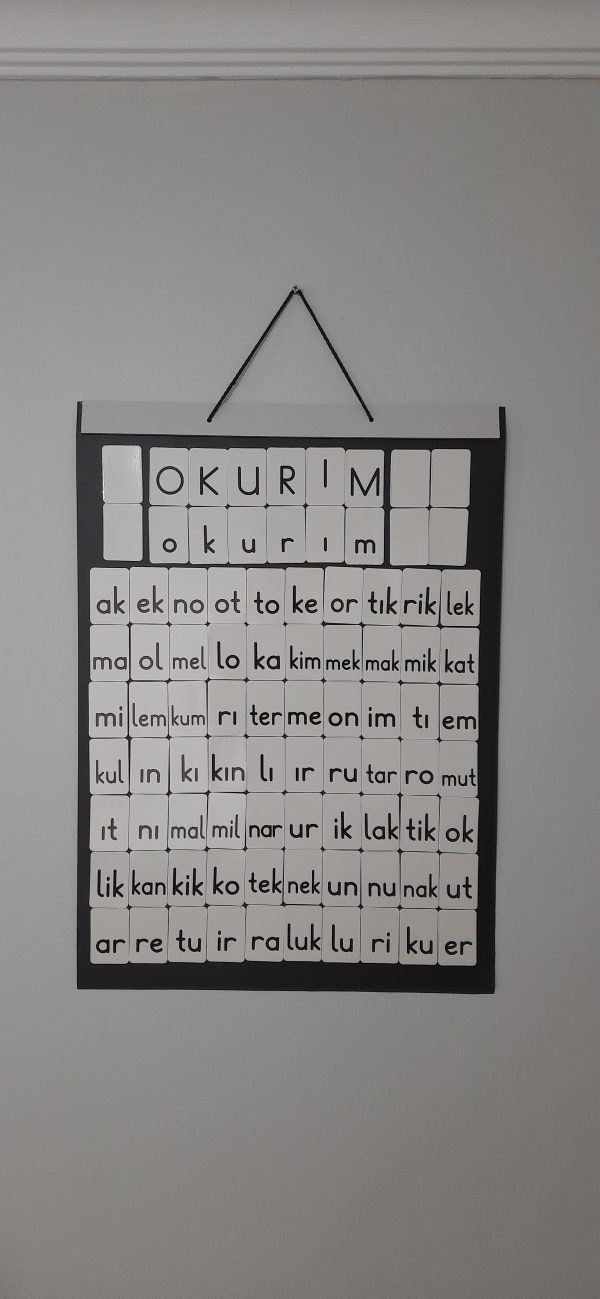 O K U R I M
o k u r ı m
ak ek no ot to ke or tık rik lek
ma ol mel lo ka kim mek mak mik kat
mi lem kum rı ter me on im tı em
kul ın kı kın lı ır ru tar ro mut
ıt nı mal mil nar ur ik lak tik ok
lik kan kik ko tek nek un nu nak ut
ar re tu ir ra luk lu ri ku er